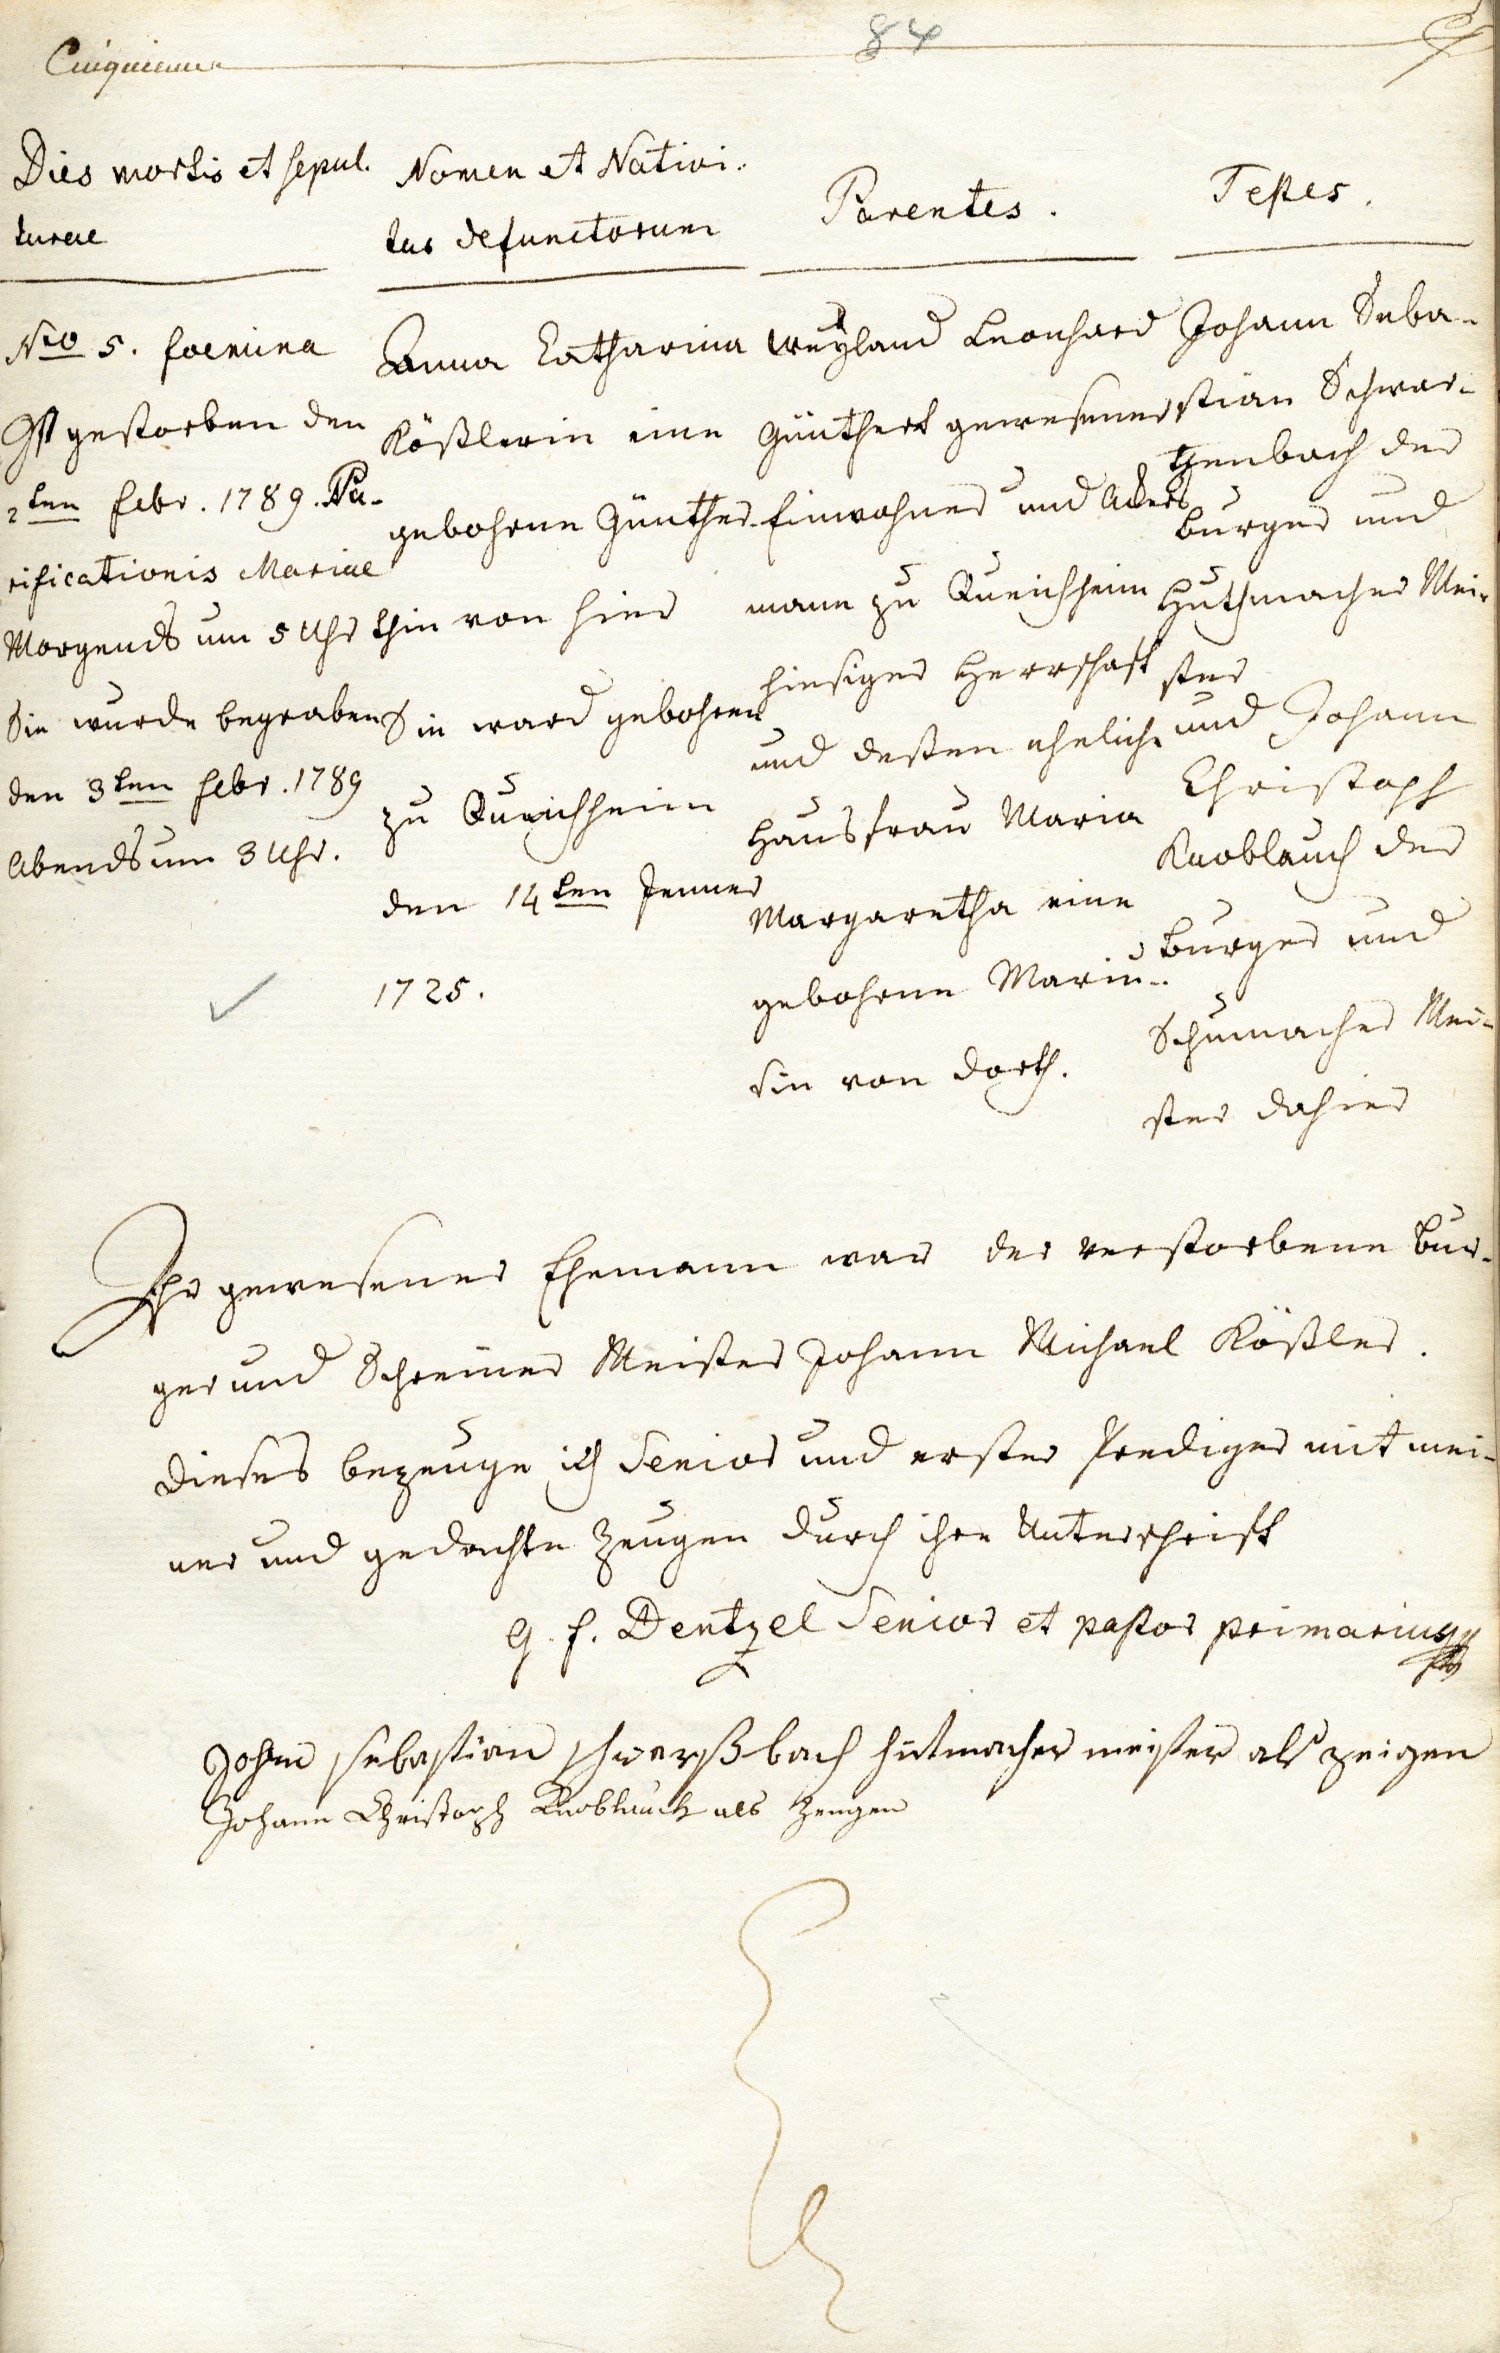 84
Cinquieme
Dies mortis et sepul.
turae
No 5. foemina
Ist gestorben den
2ten febr. 1789. Pu-
rificationis Mariae
Morgends um 5 Uhr
Sie wurde begraben
den 3ten febr. 1789
Abends um 3 Uhr.
Nomen et Nativi.
tas defunctorum
Anna Catharina
Kößlerin eine
gebohrne Günther-
thin von hier
Sie ward gebohren
zu Queichheim
den 14ten Jenner
1725.
Parentes.
weyland Leonhard
Günthert gewesener
Einwohner und Ackers
mann zu Queichheim
hiesiger Herrschaft
und deßen eheliche
Hausfrau Maria
Margaretha eine
gebohrne
sin von dorth.
Testes.
Johann Seba-
stian Schwar-
tzenbach der
burger und
Huthmacher Mei-
ster
und Johann
Christoph
Knoblauch der
burger und
Schumacher Mei-
ster dahier
Ihr gewesener Ehemann war der verstorbene bur-
ger und Schreiner Meister Johann Michael Kößler.
Dieses bezeuge ich Senior und erster Prediger mit mei-
ner und gedachte Zeugen durch ihre Unterschrift
G. F. Dentzel Senior et pastor primarius
Johan sebastian schwarßbach hutmacher meister als zeigen
Johann Christoph Knoblauch als Zeugen